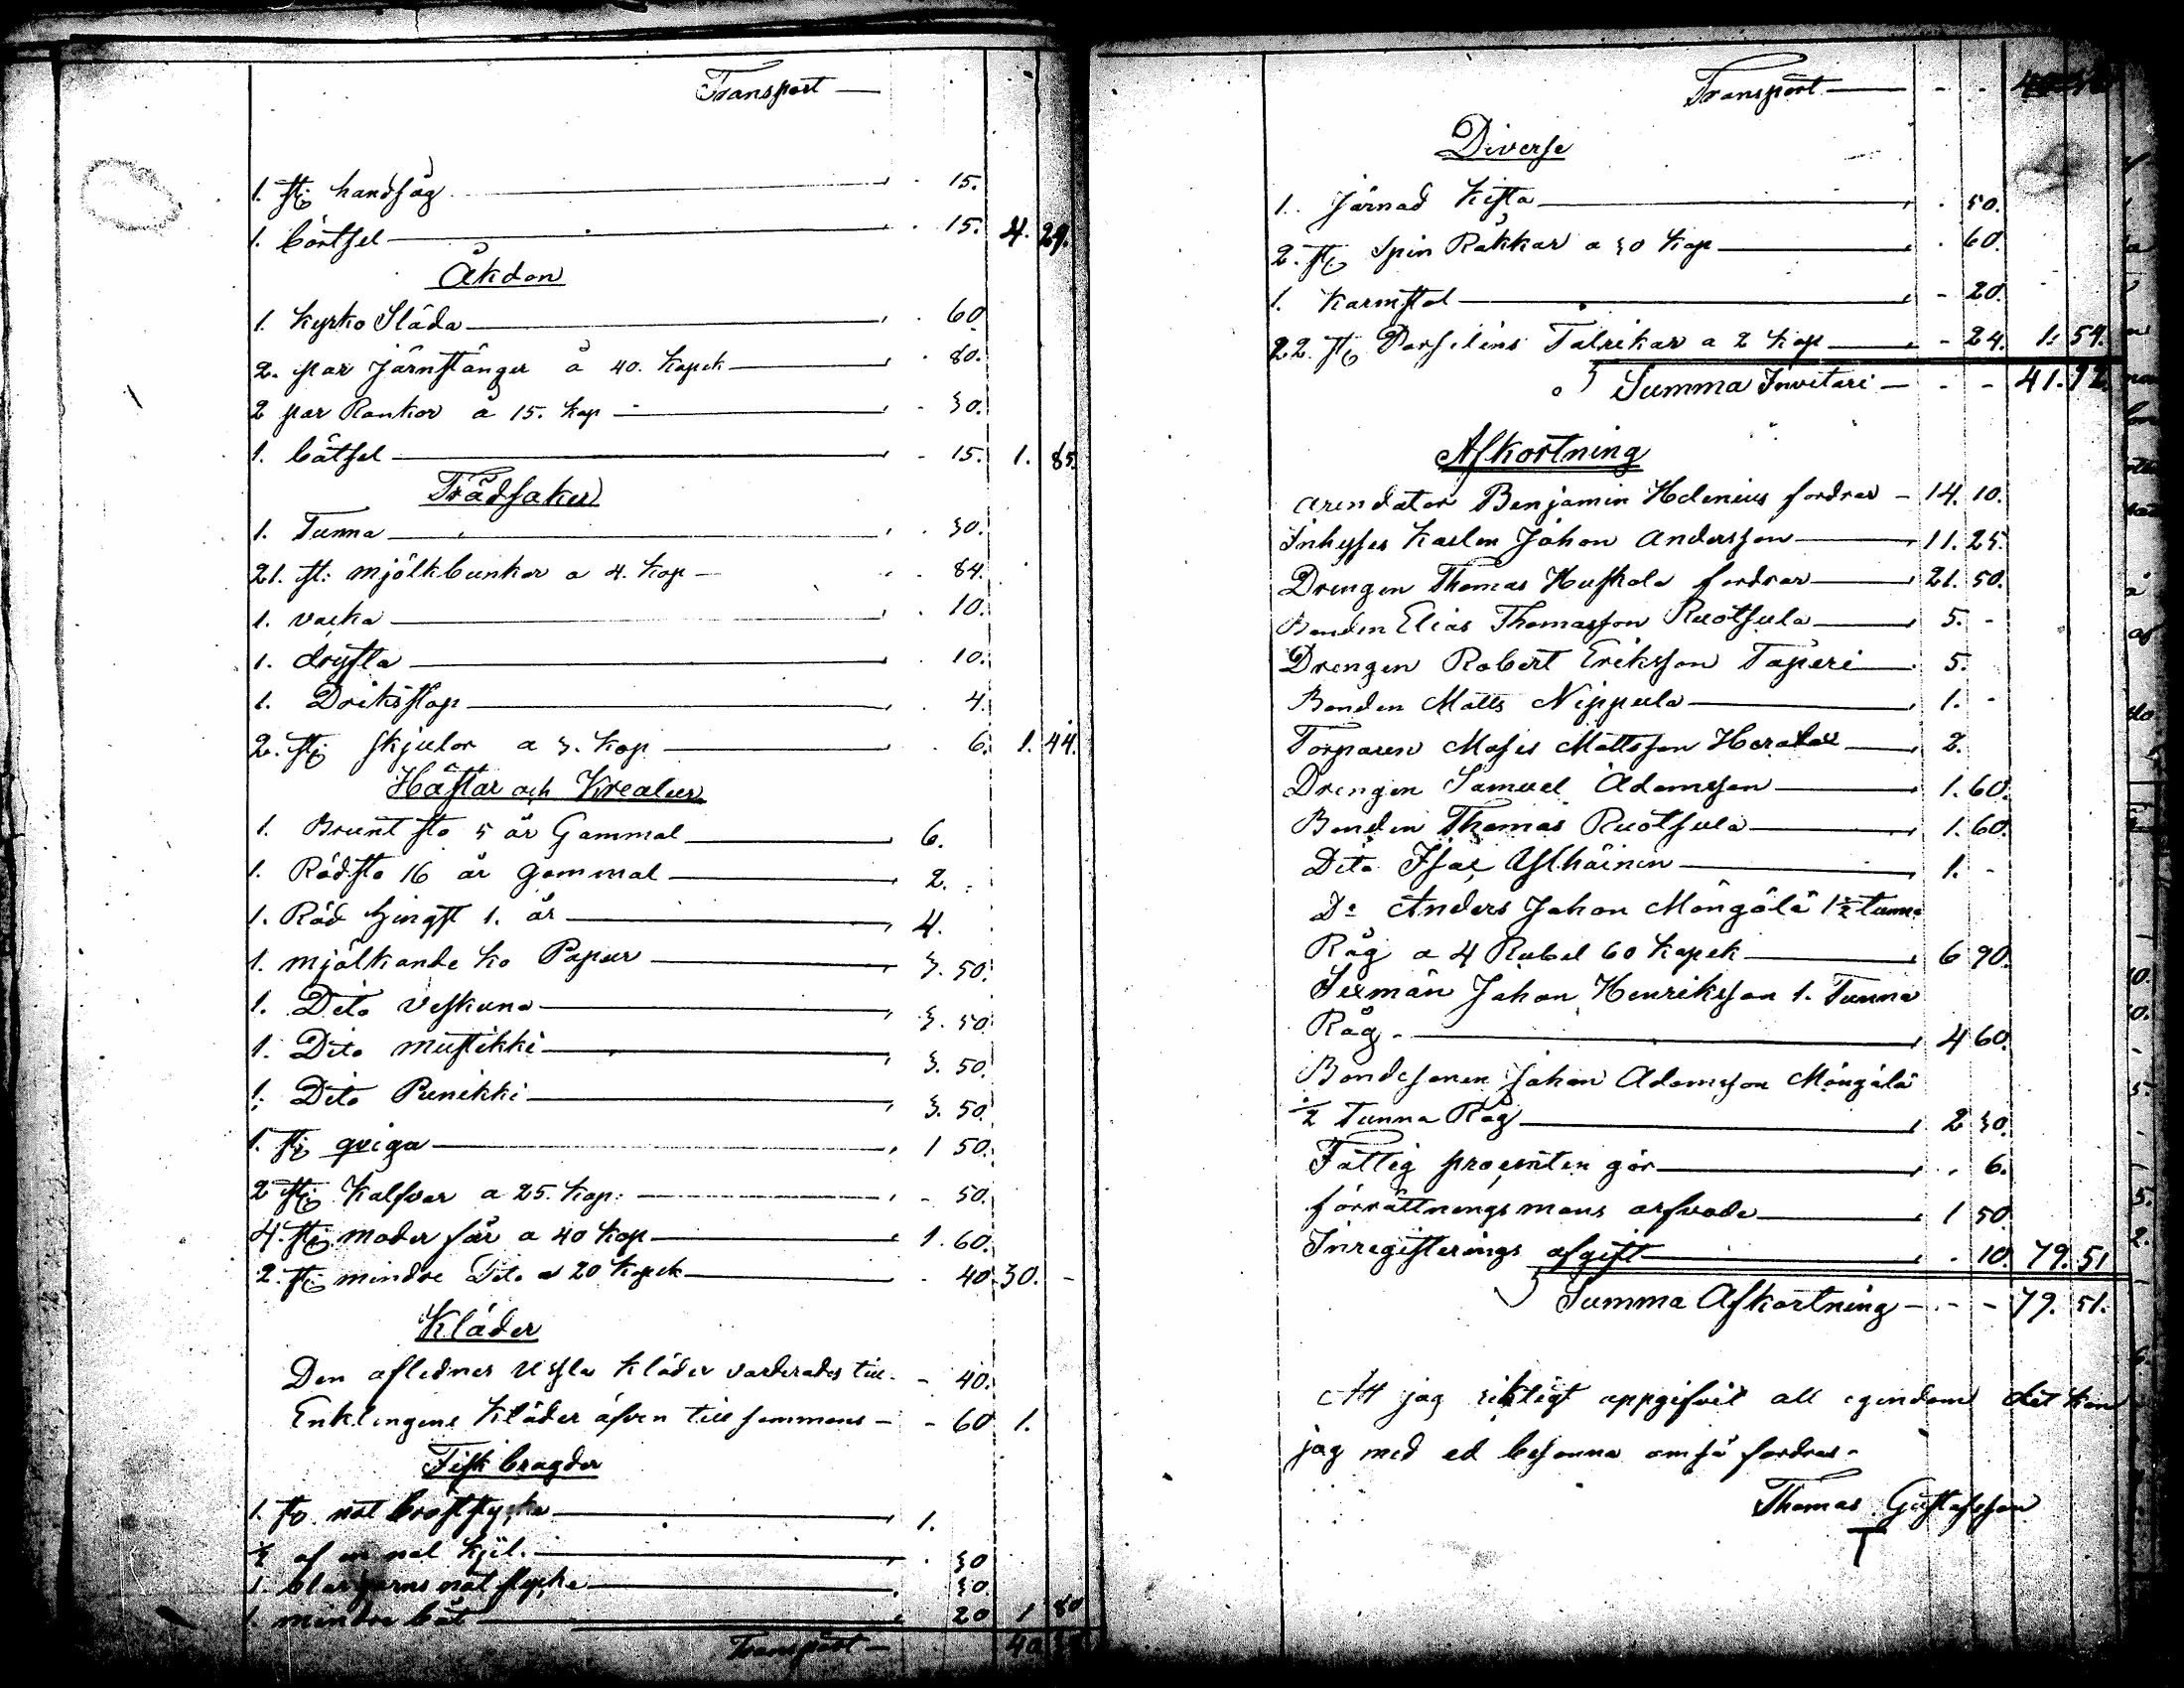 Transport —
1. st: handsåg — 15.
1. bortsel — 15. 4. 29.
Åkdon
1. Kyrko Släda — 60
2. par Järnstänger å 40. Kopek — 80.
2 par Rankor å 15. Kop — 30.
1. båtsel — 15. 1. 85.
Trädsaker
1. Tunna — 30.
21. st: mjölkbunkar a 4. Kop — 84.
1. vacka — 10.
1. dryfta — 10.
1. Drikstop — 4.
2. st: skjulor a 3. Kop — 6. 1. 44.
Hästar och Kreatur
1. Brunt sto 5 år Gammal — 6.
1. Rödsto 16 år gammal — 2.
1. Röd hingst 1. år — 4.
1. mjölkande Ko Papur — 3. 50.
1. Dito Veskuna — 3. 50
1. Dito mustikki — 3. 50.
1. Dito Punikki — 3. 50.
1. st: qviga — 1 50.
2 st: Kalfvar a 25. Kop: — 50.
4. st: moder får a 40 Kop — 1. 60.
2. st: mindre Dito a 20 Kopek — 40. 30. -
Kläder
Den aflednes usla Kläder värderades till - 40.
Enklingens Kläder äfven till sammans - 60 1.
Fisk bragder
1. not bröststycke — 1.
½ af en not Kjil. — 30
1. not stycke — 30.
1. mindre båt — 20 1 80
Transport — 40
Transport — - -
Diverse
1. Järnad Kista — 50.
2. st: Spin Råkkar a 30 Kop — 60.
1. Karmstol — 20.
22. st: Porselins Talrikar a 2 Kop — 24. 1. 54.
Summa Invitari — - - 41. 92.
Afkortning
arendator Benjamin Helenius fordrar - 14. 10.
Inhyses Karlen Johan Andersson — 11. 25.
Drengen Thomas Huskola fordrar — 21. 50.
Bonden Elias Thomasson Ruotsula — 5. -
Drengen Robert Eriksson Taperi — 5.
Bonden Matts Nippula — 1. -
Torparen Moses Mattsson Herala — 2.
Drengen Samuel Adamsson — 1. 60.
Bonden Thomas Ruotsula — 1. 60.
Dito Isac Ylhäinen — 1. -
Do Anders Johan Mängälä 1½ tunna
Råg a 4 Rubel 60 Kopek — 6 90.
Sexman Johan Henriksson 1. Tunna
Råg. — 4 60.
Bondesonen Johan Adamsson Mängälä
½ Tunna Råg — 2 30.
Fattig procenten gör — 6.
förrättningsmans arfvode — 1 50.
Inregisterings afgift — 10. 79. 51
Summa Afkortning — - - 79. 51.
Att jag riktigt uppgifvit all egendom det kan
jag med ed besanna om så fordras.
Thomas Gustafsson